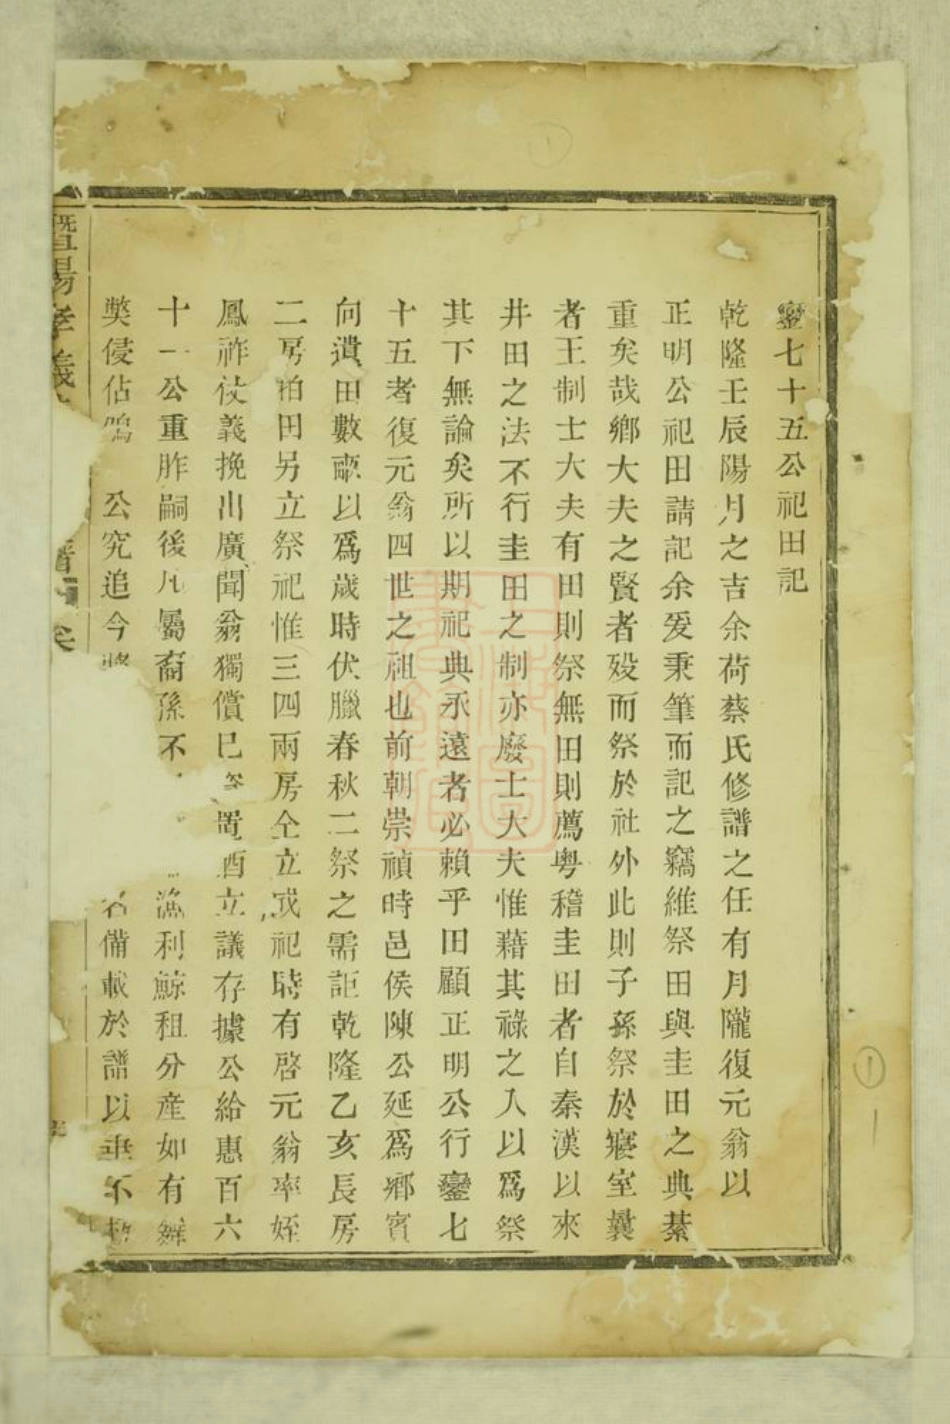 鑾七十五公祀田記
乾隆壬辰陽月之吉余荷蔡氏修譜之任有月隴復元翁以
正明公祀田請記余爰秉筆而記之竊維祭田與圭田之典綦
重矣哉鄉大夫之賢者歿而祭於社外此則子孫祭於寢室曩
者王制士大夫有田則祭無田則薦粤稽圭田者自秦漢以來
井田之法不行圭田之制亦廢士大夫惟藉其祿之入以爲祭
其下無論矣所以期祀典永遠者必賴乎田顧正明公行鑾七
十五者復元翁四世之祖也前朝崇禎時邑侯陳公延爲鄉賓
向遺田數畝以爲歲時伏臘春秋二祭之需詎乾隆乙亥長房
二房拍田另立祭祀惟三四兩房仝立或祀時有啓元翁率姪
鳳祚仗義挽出廣聞翁獨償已 置酒立議存據公給惠百六
十一公重胙嗣後凡屬裔孫不 漁利鯨租分産如有
獘侵佔鳴 公究追今將 名備載於譜以垂不
暨陽孝義 譜